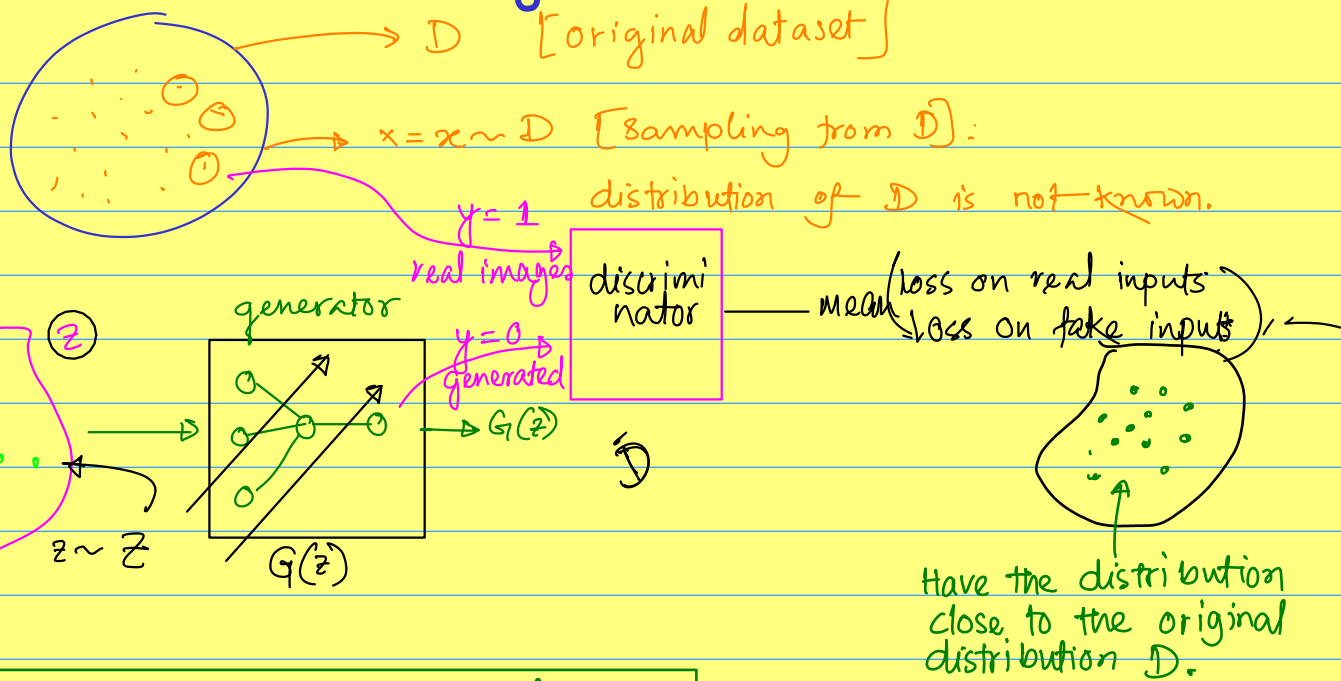 D [original dataset]
x = x ~ D [sampling from D].
distribution of D is not known.
y = 1
real images
discrimi
nator
mean (loss on real inputs
loss on fake inputs)
generator
Z
y = 0
generated
G(z)
D
z ~ Z
G(z)
Have the distribution
close to the original
distribution D.